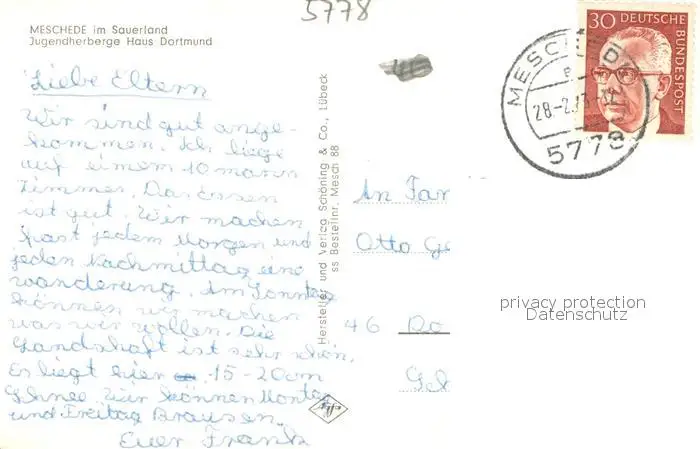 5778
MESCHEDE im Sauerland
Jugendherberge Haus Dortmund
Liebe Eltern
Wir sind gut ange-
kommen. Ich liege
auf einem 10 mann
Zimmer. Das Essen
ist gut. Wir machen
fast jedem Morgen und
jeden Nachmittag eine
wanderung. Am Sonntag
können wir machen
was wir wollen. Die
Landschaft ist sehr schön.
Es liegt hier 15-20cm
Schnee. Wir können Montag
und Freitag Brausen.
Euer Frank
Hersteller und Verlag Schöning & Co., Lübeck
ss Bestellnr. Mesch 88
30 DEUTSCHE
BUNDESPOST
MESCHEDE
28-2.
5778
An Fam
Otto Ge
46 Do
privacy protection
Datenschutz